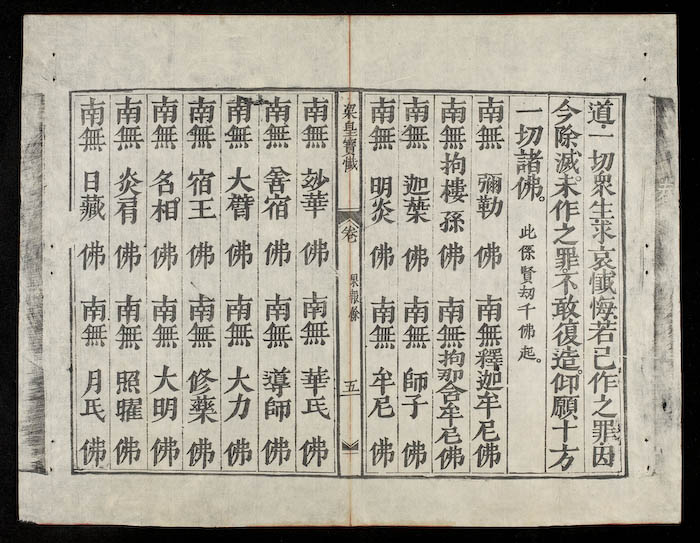 道一切眾生求哀懺悔。若已作之罪。因
今除滅。未作之罪。不敢復造。仰願十方
一切諸佛。 此係賢劫千佛起。
南無彌勒佛 南無釋迦牟尼佛
南無拘樓孫佛 南無拘那含牟尼佛
南無迦葉佛 南無師子佛
南無明炎佛 南無牟尼佛
梁皇寶懺 卷 果報餘 五
南無玅華佛 南無華氏佛
南無善宿佛 南無導師佛
南無大臂佛 南無大力佛
南無宿王佛 南無修藥佛
南無名相佛 南無大明佛
南無炎肩佛 南無照曜佛
南無日藏佛 南無月氏佛